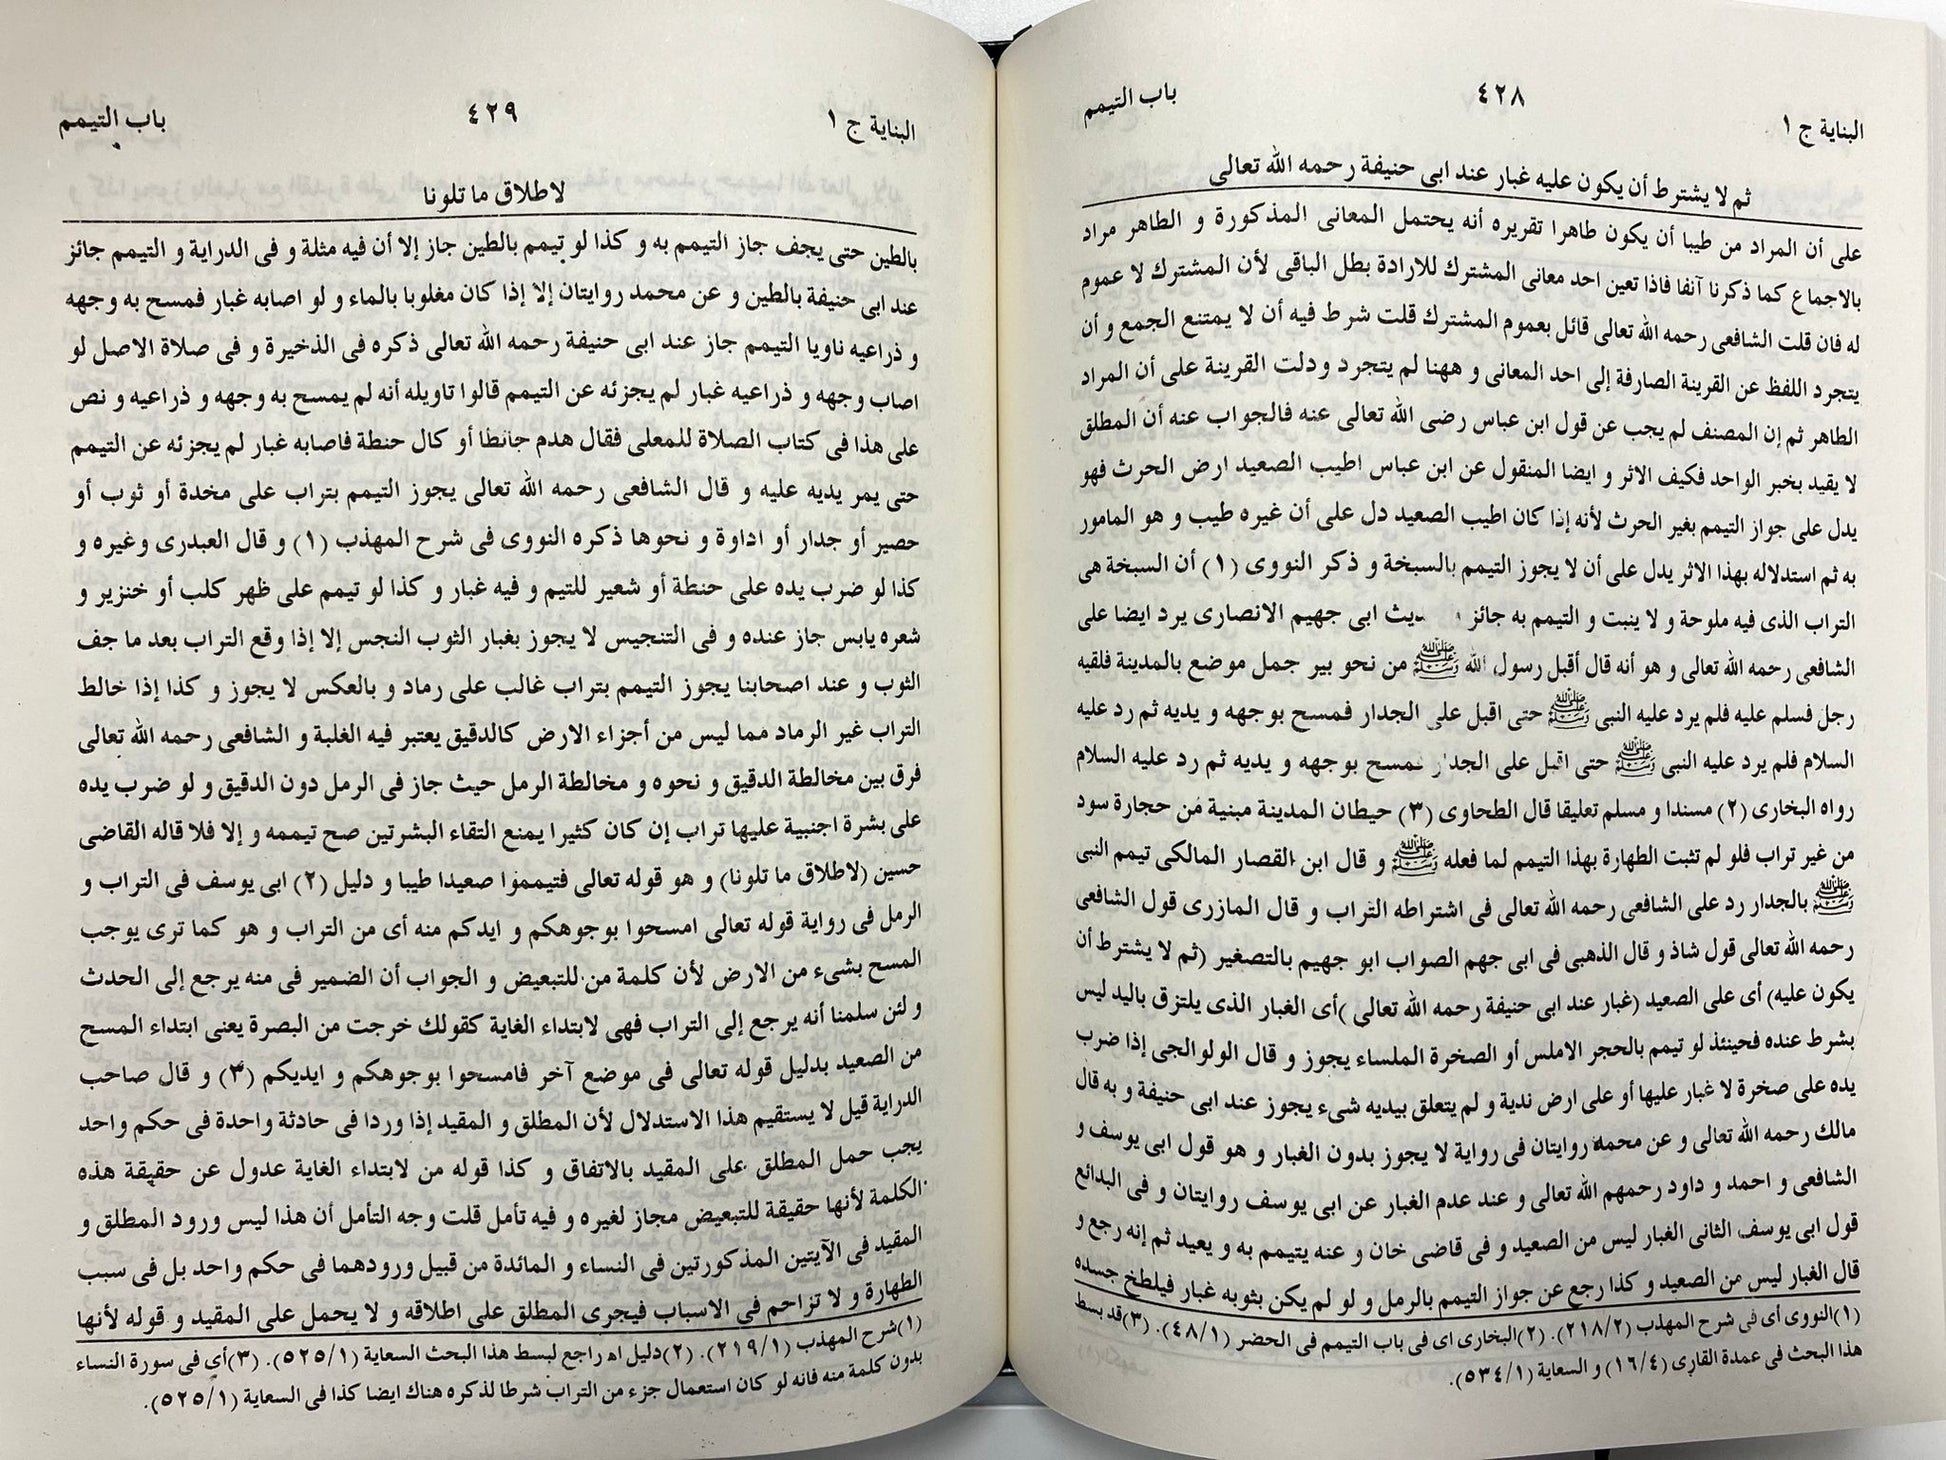 البناية ج ١
٤٢٨
باب التيمم
ثم لا يشترط أن يكون عليه غبار عند ابى حنيفة رحمه الله تعالى
على أن المراد من طيبا أن يكون طاهرا تقريره أنه يحتمل المعانى المذكورة و الطاهر مراد
بالاجماع كما ذكرنا آنفا فاذا تعين احد معانى المشترك للارادة بطل الباقى لأن المشترك لا عموم
له فان قلت الشافعى رحمه الله تعالى قائل بعموم المشترك قلت شرط فيه أن لا يمتنع الجمع و أن
يتجرد اللفظ عن القرينة الصارفة إلى احد المعانى و ههنا لم يتجرد ودلت القرينة على أن المراد
الطاهر ثم إن المصنف لم يجب عن قول ابن عباس رضى الله تعالى عنه فالجواب عنه أن المطلق
لا يقيد بخبر الواحد فكيف الاثر و ايضا المنقول عن ابن عباس اطيب الصعيد ارض الحرث فهو
يدل على جواز التيمم بغير الحرث لأنه إذا كان اطيب الصعيد دل على أن غيره طيب و هو المامور
به ثم استدلاله بهذا الاثر يدل على أن لا يجوز التيمم بالسبخة و ذكر النووى (١) أن السبخة هى
التراب الذى فيه ملوحة و لا ينبت و التيمم به جائز ديث ابى جهيم الانصارى يرد ايضا على
الشافعى رحمه الله تعالى و هو أنه قال أقبل رسول الله ﷺ من نحو بير جمل موضع بالمدينة فلقيه
رجل فسلم عليه فلم يرد عليه النبى ﷺ حتى اقبل على الجدار فمسح بوجهه و يديه ثم رد عليه
السلام فلم يرد عليه النبى ﷺ حتى اقبل على الجدار فمسح بوجهه و يديه ثم رد عليه السلام
رواه البخارى (٢) مسندا و مسلم تعليقا قال الطحاوى (٣) حيطان المدينة مبنية من حجارة سود
من غير تراب فلو لم تثبت الطهارة بهذا التيمم لما فعله ﷺ و قال ابن القصار المالكى تيمم النبى
ﷺ بالجدار رد على الشافعى رحمه الله تعالى فى اشتراطه التراب و قال المازرى قول الشافعى
رحمه الله تعالى قول شاذ و قال الذهبى فى ابى جهم الصواب ابو جهيم بالتصغير (ثم لا يشترط أن
يكون عليه) أى على الصعيد (غبار عند ابى حنيفة رحمه الله تعالى )أى الغبار الذى يلتزق باليد ليس
بشرط عنده فحينئذ لو تيمم بالحجر الاملس أو الصخرة الملساء يجوز و قال الولوالجى إذا ضرب
يده على صخرة لا غبار عليها أو على ارض ندية و لم يتعلق بيديه شىء يجوز عند ابى حنيفة و به قال
مالك رحمه الله تعالى و عن محمد روايتان فى رواية لا يجوز بدون الغبار و هو قول ابى يوسف و
الشافعى و احمد و داود رحمهم الله تعالى و عند عدم الغبار عن ابى يوسف روايتان و فى البدائع
قول ابى يوسف الثانى الغبار ليس من الصعيد و فى قاضى خان و عنه يتيمم به و يعيد ثم إنه رجع و
قال الغبار ليس من الصعيد و كذا رجع عن جواز التيمم بالرمل و لو لم يكن بثوبه غبار فيلطخ جسده
(١)النووى أى فى شرح المهذب (٢١٨/٢). (٢)البخارى اى فى باب التيمم فى الحضر (٤٨/١). (٣)قد بسط
هذا البحث فى عمدة القارى (١٦/٤) و السعاية (٥٣٤/١).
البناية ج ١
٤٢٩
باب التيمم
لاطلاق ما تلونا
بالطين حتى يجف جاز التيمم به و كذا لو تيمم بالطين جاز إلا أن فيه مثلة و فى الدراية و التيمم جائز
عند ابى حنيفة بالطين و عن محمد روايتان إلا إذا كان مغلوبا بالماء و لو اصابه غبار فمسح به وجهه
و ذراعيه ناويا التيمم جاز عند ابى حنيفة رحمه الله تعالى ذكره فى الذخيرة و فى صلاة الاصل لو
اصاب وجهه و ذراعيه غبار لم يجزئه عن التيمم قالوا تاويله أنه لم يمسح به وجهه و ذراعيه و نص
على هذا فى كتاب الصلاة للمعلى فقال هدم حائطا أو كال حنطة فاصابه غبار لم يجزئه عن التيمم
حتى يمر يديه عليه و قال الشافعى رحمه الله تعالى يجوز التيمم بتراب على مخدة أو ثوب أو
حصير أو جدار أو اداوة و نحوها ذكره النووى فى شرح المهذب (١) و قال العبدرى وغيره و
كذا لو ضرب يده على حنطة أو شعير للتيم و فيه غبار و كذا لو تيمم على ظهر كلب أو خنزير و
شعره يابس جاز عنده و فى التنجيس لا يجوز بغبار الثوب النجس إلا إذا وقع التراب بعد ما جف
الثوب و عند اصحابنا يجوز التيمم بتراب غالب على رماد و بالعكس لا يجوز و كذا إذا خالط
التراب غير الرماد مما ليس من أجزاء الارض كالدقيق يعتبر فيه الغلبة و الشافعى رحمه الله تعالى
فرق بين مخالطة الدقيق و نحوه و مخالطة الرمل حيث جاز فى الرمل دون الدقيق و لو ضرب يده
على بشرة اجنبية عليها تراب إن كان كثيرا يمنع التقاء البشرتين صح تيممه و إلا فلا قاله القاضى
حسين (لاطلاق ما تلونا) و هو قوله تعالى فتيمموا صعيدا طيبا و دليل (٢) ابى يوسف فى التراب و
الرمل فى رواية قوله تعالى امسحوا بوجوهكم و ايدكم منه أى من التراب و هو كما ترى يوجب
المسح بشىء من الارض لأن كلمة من للتبعيض و الجواب أن الضمير فى منه يرجع إلى الحدث
و لئن سلمنا أنه يرجع إلى التراب فهى لابتداء الغاية كقولك خرجت من البصرة يعنى ابتداء المسح
من الصعيد بدليل قوله تعالى فى موضع آخر فامسحوا بوجوهكم و ايديكم (٣) و قال صاحب
الدراية قيل لا يستقيم هذا الاستدلال لأن المطلق و المقيد إذا وردا فى حادثة واحدة فى حكم واحد
يجب حمل المطلق على المقيد بالاتفاق و كذا قوله من لابتداء الغاية عدول عن حقيقة هذه
الكلمة لأنها حقيقة للتبعيض مجاز لغيره و فيه تأمل قلت وجه التأمل أن هذا ليس ورود المطلق و
المقيد فى الآيتين المذكورتين فى النساء و المائدة من قبيل ورودهما فى حكم واحد بل فى سبب
الطهارة و لا تزاحم فى الاسباب فيجرى المطلق على اطلاقه و لا يحمل على المقيد و قوله لأنها
(١)شرح المهذب (٢١٩/١). (٢)دليل اه راجع لبسط هذا البحث السعاية (٥٢٥/١). (٣)أى فى سورة النساء
بدون كلمة منه فانه لو كان استعمال جزء من التراب شرطا لذكره هناك ايضا كذا فى السعاية (٥٢٥/١).